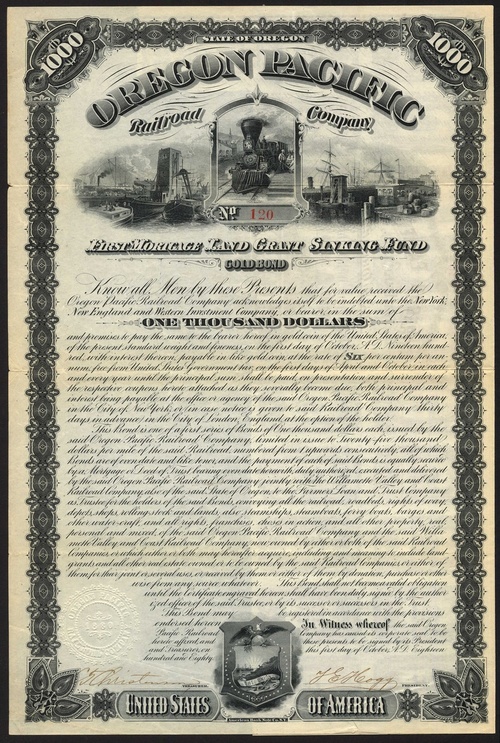 1000
1000
STATE OF OREGON
OREGON PACIFIC
Railroad Company,
No 120
FIRST MORTGAGE LAND GRANT SINKING FUND
GOLD BOND
Know all Men by these Presents, that for value received the
Oregon Pacific Railroad Company acknowledges itself to be indebted unto the New York,
New England and Western Investment Company, or bearer, in the sum of
ONE THOUSAND DOLLARS
and promises to pay the same to the bearer hereof in gold coin of the United States of America,
of the present standard weight and fineness, on the first day of October, A.D. Nineteen hund-
red, with interest thereon, payable in like gold coin, at the rate of SIX per centum per an-
num, free from United States Government tax, on the first days of April and October in each
and every year until the principal sum shall be paid, on presentation and surrender of
the respective coupons hereto attached as they severally become due, both principal and
interest being payable at the office or agency of the said Oregon Pacific Railroad Company
in the City of New York, or in case notice is given to said Railroad Company thirty
days in advance in the City of London, England, at the option of the holder.
This Bond is one of a first series of Bonds of One thousand dollars each, issued by the
said Oregon Pacific Railroad Company, limited in issue to Twenty-five thousand
dollars per mile of the said Railroad, numbered from 1 upwards consecutively, all of which
Bonds are of even date and like tenor, and the payment of each of said Bonds is equally secured
by a Mortgage or Deed of Trust bearing even date herewith, duly authorized, executed and delivered
by the said Oregon Pacific Railroad Company jointly with the Willamette Valley and Coast
Railroad Company, also of the said State of Oregon, to the Farmers Loan and Trust Company
as Trustee for the holders of the said Bonds, conveying all the railroad, roadbeds, rights of way,
depots, shops, rolling stock and lands, also, steamships, steamboats, ferry boats, barges and
other water-craft and all rights, franchises, choses in action, and all other property, real,
personal and mixed, of the said Oregon Pacific Railroad Company and the said Willa-
mette Valley and Coast Railroad Company, now owned by either or both of the said Railroad
Companies, or which either or both may hereafter acquire, including and meaning to include land-
grants and all other real estate owned or to be owned by the said Railroad Companies, or either of
them for their joint or several uses, or acquired by them or either of them by donation, purchase or other-
wise from any source whatever. This Bond shall not become a valid obligation
until the Certificate engraved hereon shall have been duly signed by the author-
ized officer of the said Trustee, or by its successor or successors in the Trust.
This Bond may be registered in accordance with the provisions
endorsed hereon. In Witness whereof the said Oregon
Pacific Railroad Company has caused its corporate seal to be
hereto affixed, and these presents to be signed by its President
and Treasurer, on this first day of October, A.D. Eighteen
hundred and Eighty.
T E Hogg
PRESIDENT.
UNITED STATES OF AMERICA
American Bank Note Co. N.Y.